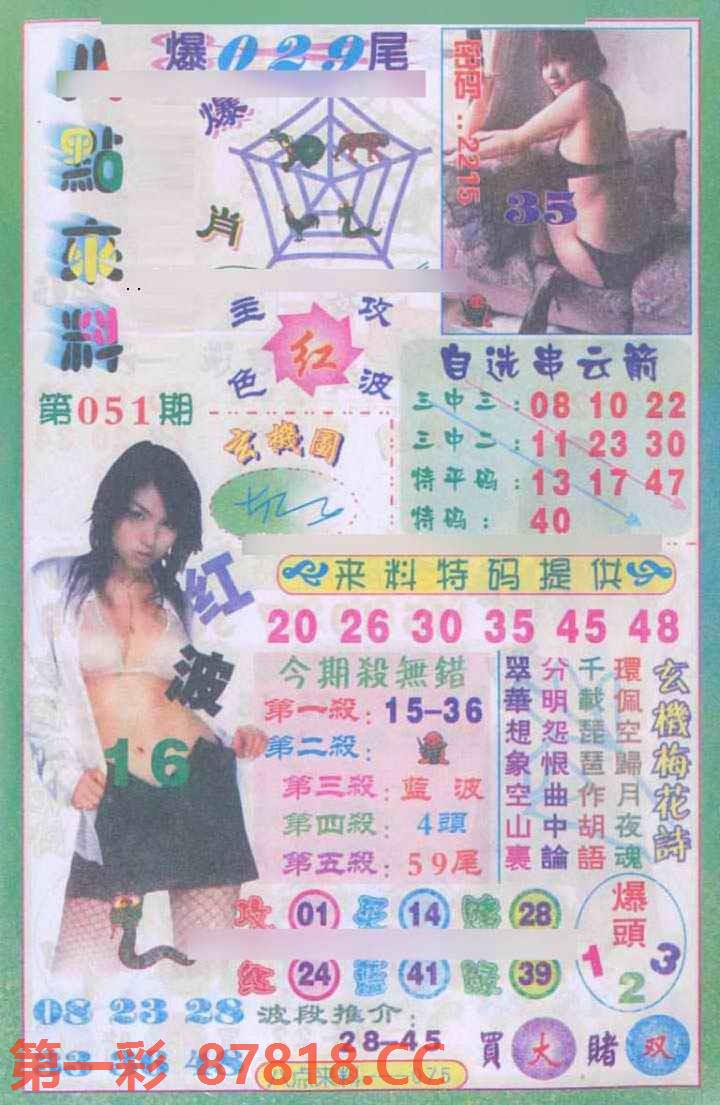 八點來料
爆029尾
爆肖
密碼..2215
35
主攻
红
色波
自选串云箭
第051期
三中三:08 10 22
三中二:11 23 30
特平码:13 17 47
特码:40
玄機圖
来料特码提供
20 26 30 35 45 48
红波
16
今期殺無錯
第一殺:15-36
第二殺:
第三殺:藍波
第四殺:4頭
第五殺:59尾
玄機梅花詩
環佩空歸月夜魂
千載琵琶作胡語
分明怨恨曲中論
翠華想象空山裏
攻 01 14 28
红 24 藍 41 綠 39
爆頭
1 2 3
08 23 28
波段推介:
28-45
買大賭双
第一彩 87818.CC